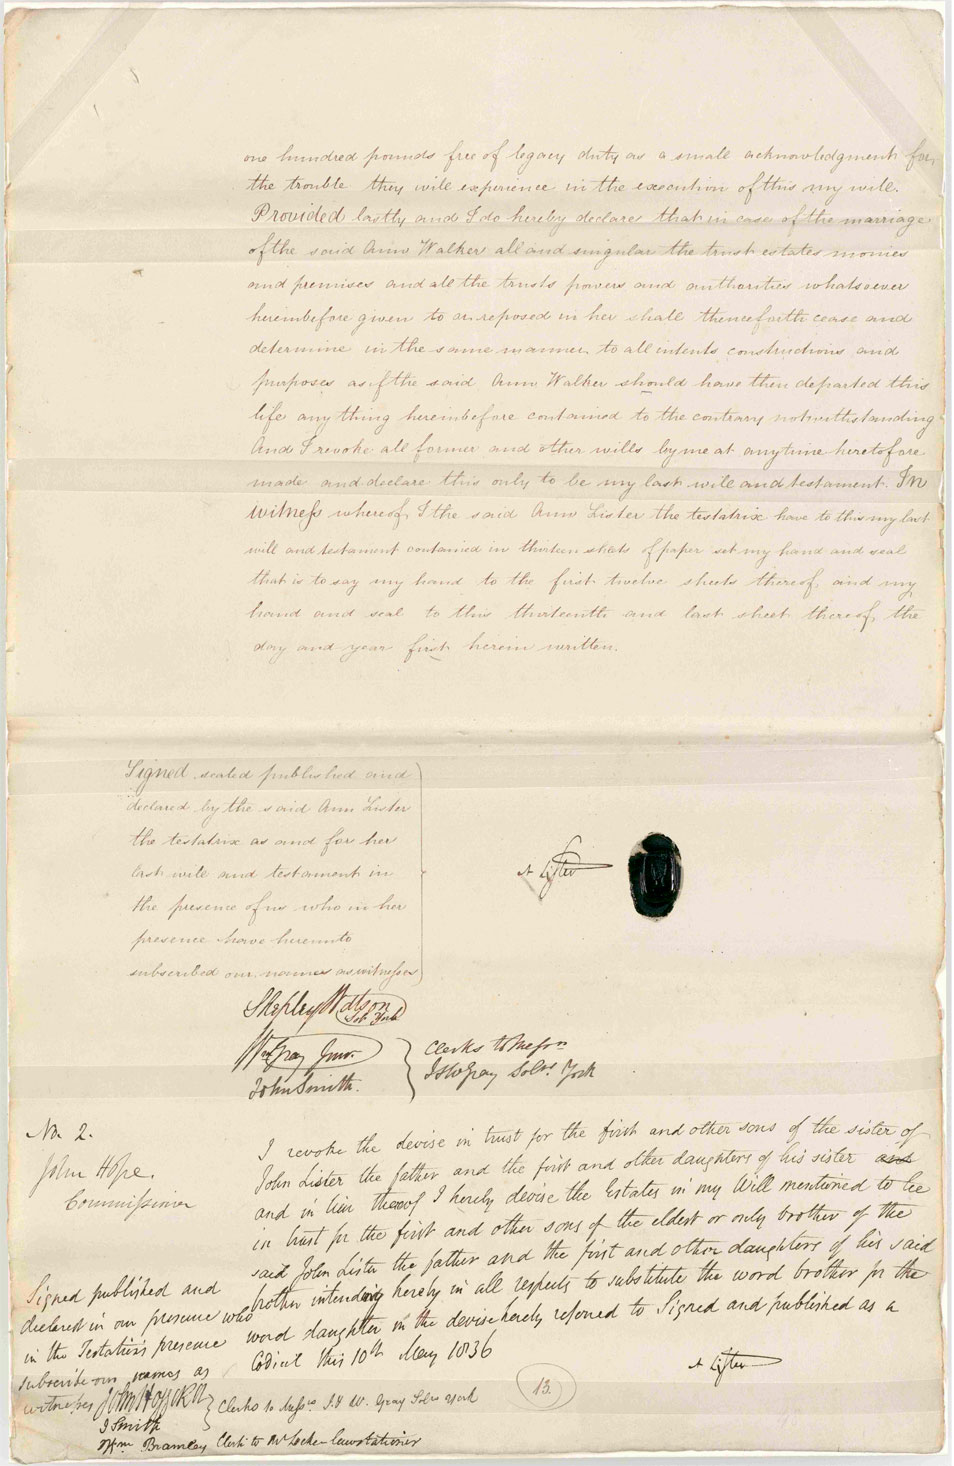 one hundred pounds free of legacy duty as a small acknowledgment for
the trouble they will experience in the execution of this my will.
Provided lastly and I do hereby declare that in case of the marriage
of the said Ann Walker all and singular the trust estates monies
and premises and all the trusts powers and authorities whatsoever
hereinbefore given to or reposed in her shall thenceforth cease and
determine in the same manner to all intents constructions and
purposes as if the said Ann Walker should have then departed this
life any thing hereinbefore contained to the contrary notwithstanding
And I revoke all former and other wills by me at any time heretofore
made and declare this only to be my last will and testament. In
witness whereof I the said Ann Lister the testatrix have to this my last
will and testament contained in thirteen sheets of paper set my hand and seal
that is to say my hand to the first twelve sheets thereof and my
hand and seal to this thirteenth and last sheet thereof, the
day and year first herein written.
Signed sealed published and
declared by the said Ann Lister
the testatrix as and for her
last will and testament in
the presence of us who in her
presence have hereunto
subscribed our names as witnesses
A Lister
Shepley Watson
Sol. York
Wm Gray Junr.
John Smith.
Clerks to Messrs
J & W Gray Solrs. York
No. 2.
John Hope.
Commissioner
I revoke the devise in trust for the first and other sons of the sister of
John Lister the father and the first and other daughters of his sister and
and in lieu thereof I hereby devise the Estates in my Will mentioned to be
in trust for the first and other sons of the eldest or only brother of the
said John Lister the father and the first and other daughters of his said
brother intending hereby in all respects to substitute the word brother for the
word daughter in the devise hereby referred to Signed and published as a
Codicil this 10th May 1836
A Lister
Signed published and
declared in our presence who
in the Testatrix's presence
subscribe our names as
witnesses
J Smith
Wm Bramley
Clerks to Messrs J & W. Gray Solrs York
Clerk to Mr
13.